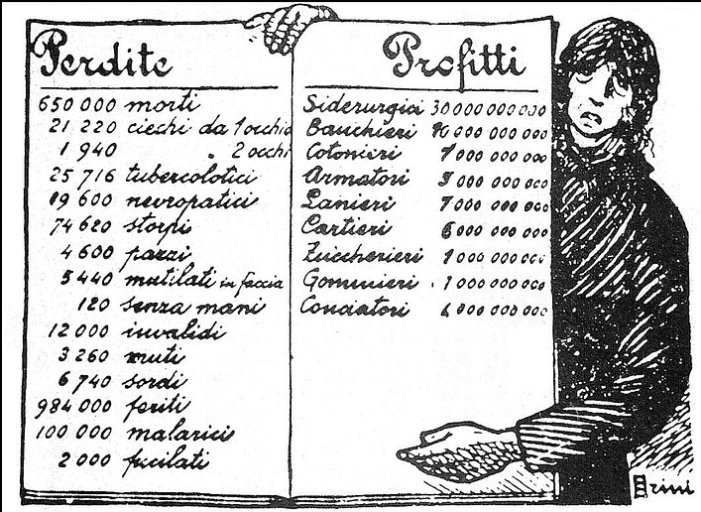 Perdite
650 000 morti
21 220 ciechi da 1 occhio
1 940 " 2 occhi
25 716 tubercolotici
19 600 nevropatici
74 620 storpi
4 600 pazzi
5 440 mutilati in faccia
120 senza mani
12 000 invalidi
3 260 muti
6 740 sordi
984 000 feriti
100 000 malarici
2 000 fucilati
Profitti
Siderurgici 30 000 000 000
Banchieri 10 000 000 000
Cotonieri
Armatori
Lanieri
Cartieri
Zuccherieri 1 000 000 000
Gommieri 1 000 000 000
Conciatori